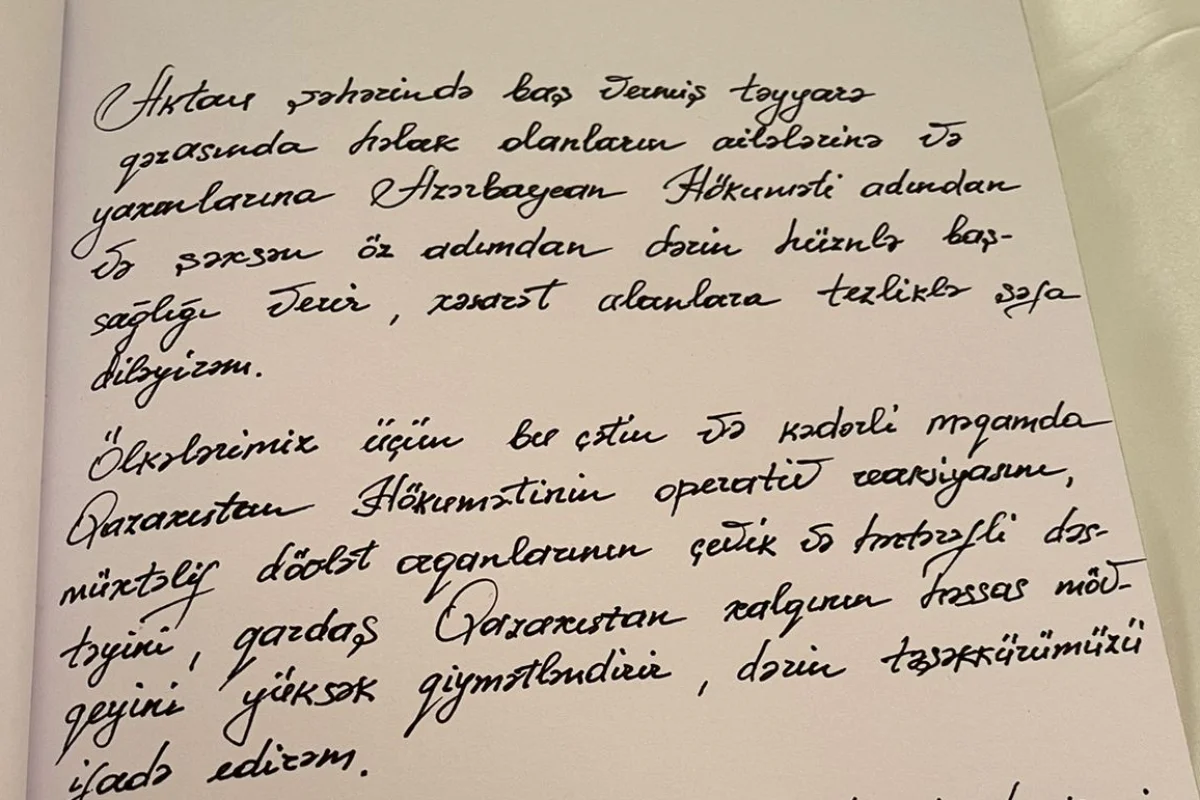 Aktau şəhərində baş vermiş təyyarə
qəzasında həlak olanların ailələrinə və
yaxınlarına Azərbaycan Hökuməti adından
və şəxsən öz adımdan dərin hüznlə baş-
sağlığı verir, xəsarət alanlara tezliklə şəfa
diləyirəm.
Ölkələrimiz üçün bu çətin və kədərli məqamda
Qazaxıstan Hökumətinin operativ reaksiyasını,
müxtəlif dövlət orqanlarının çevik və hərtərəfli dəs-
təyini, qardaş Qazaxıstan xalqının həssas möv-
qeyini yüksək qiymətləndirir, dərin təşəkkürümüzü
ifadə edirəm.